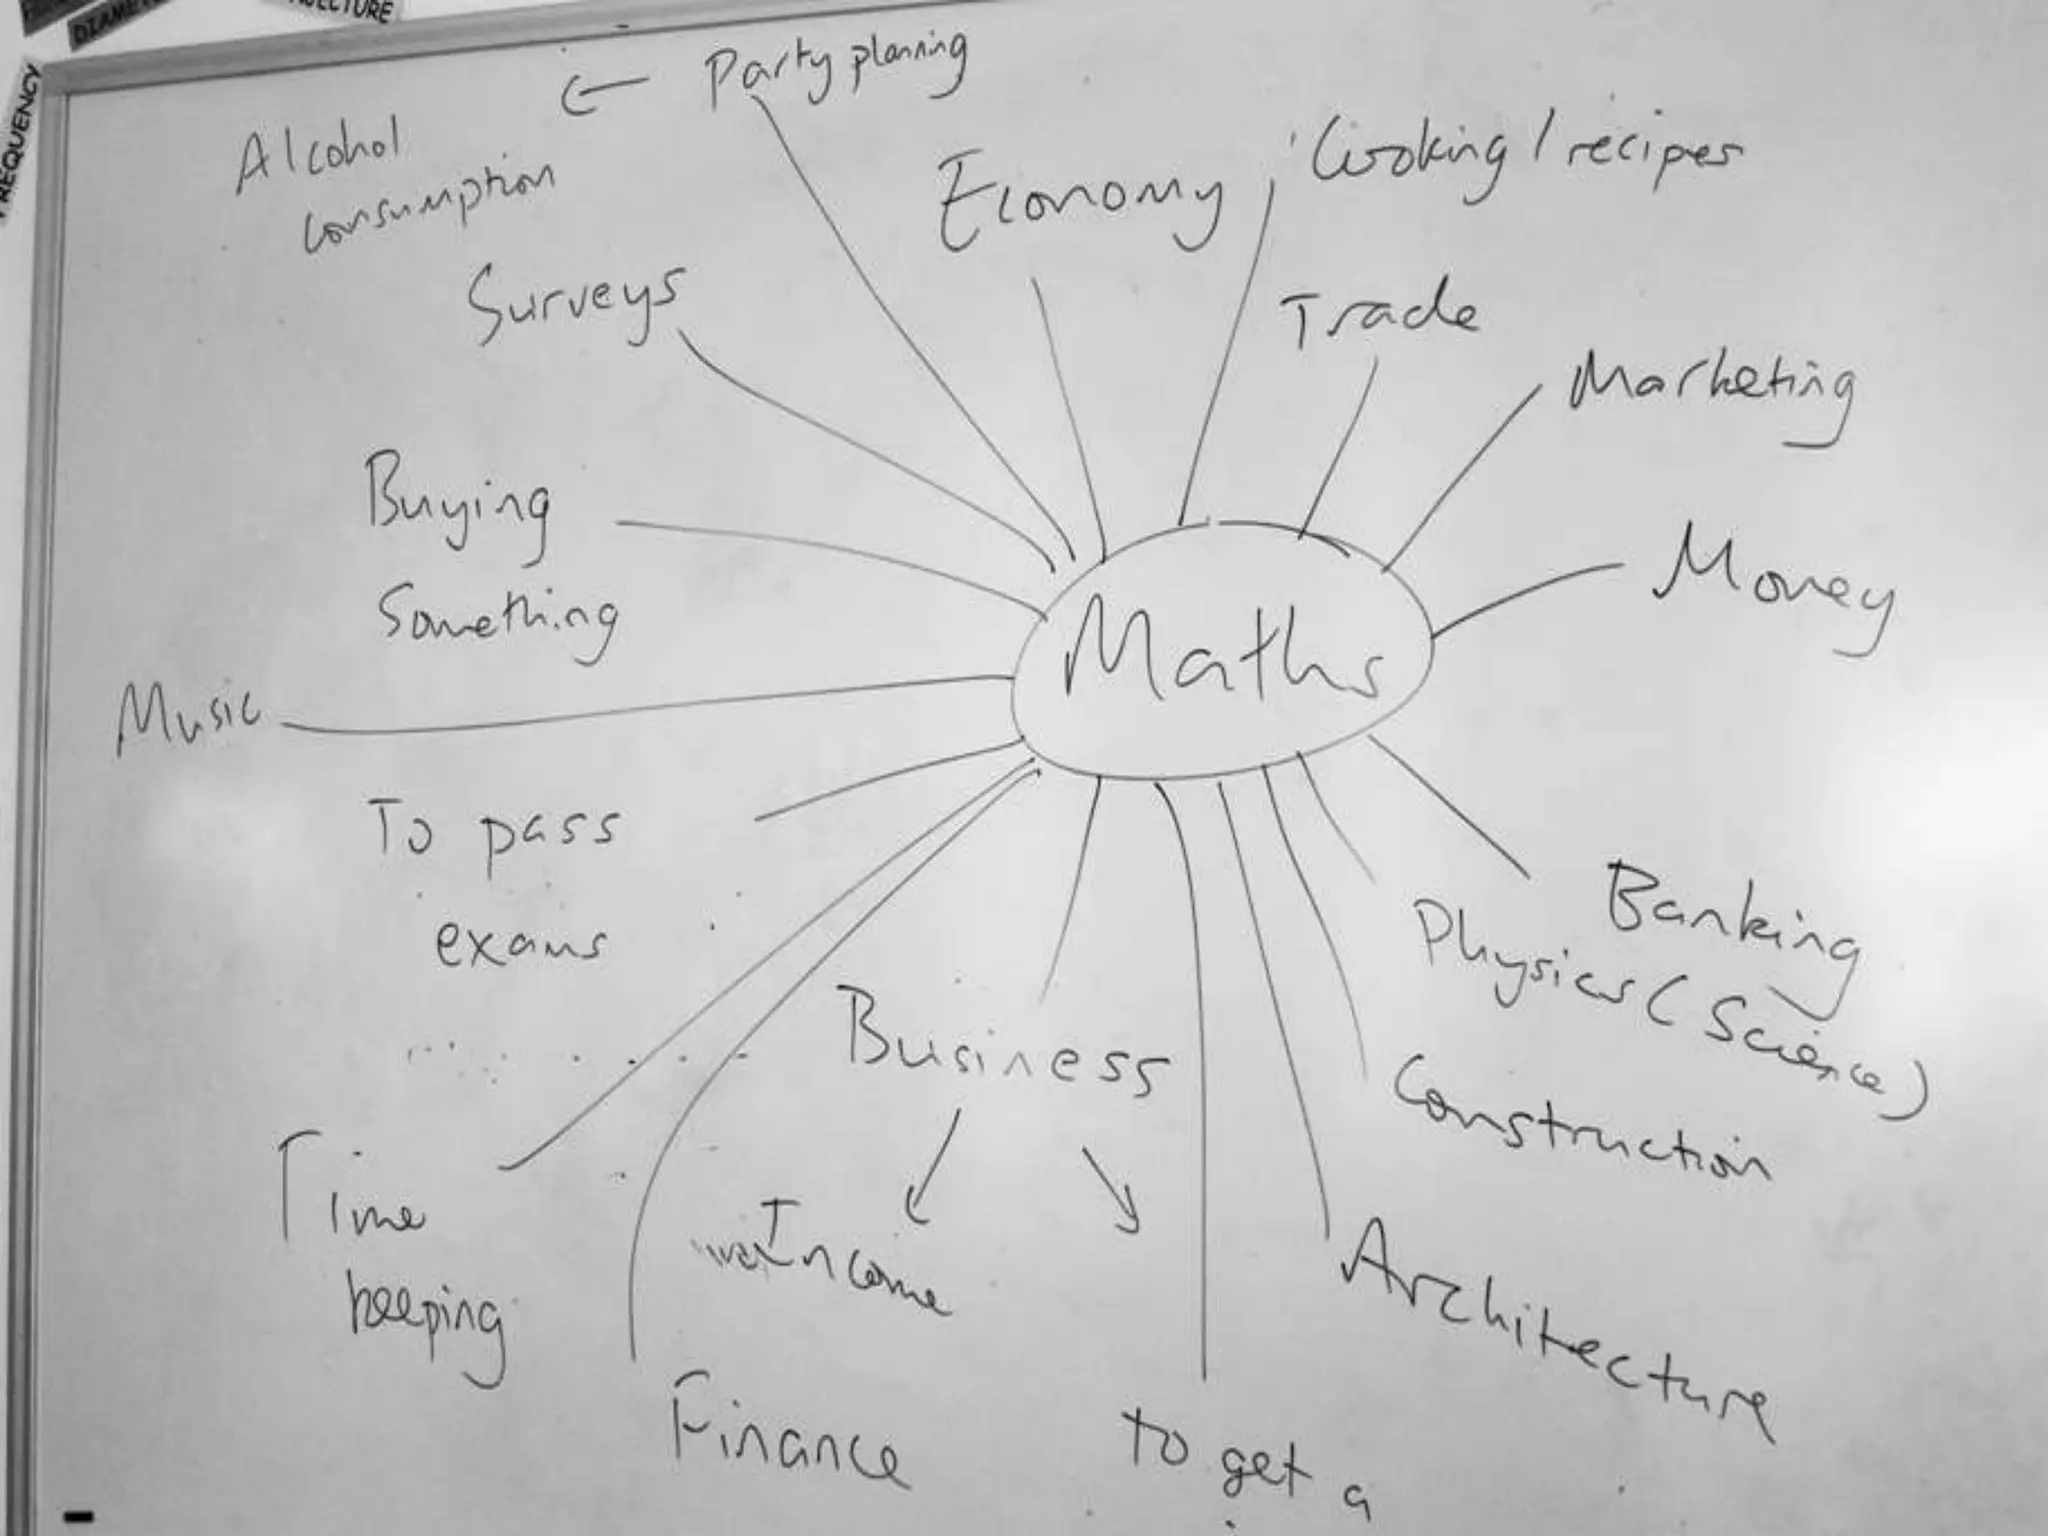 FREQUENCY
Party planning
Alcohol
consumption
Economy
Cooking / recipes
Surveys
Trade
Marketing
Buying
Something
Money
Maths
Music
To pass
exams
Banking
Physics (Science)
Business
Construction
Time
keeping
Income
Architecture
Finance
to get a